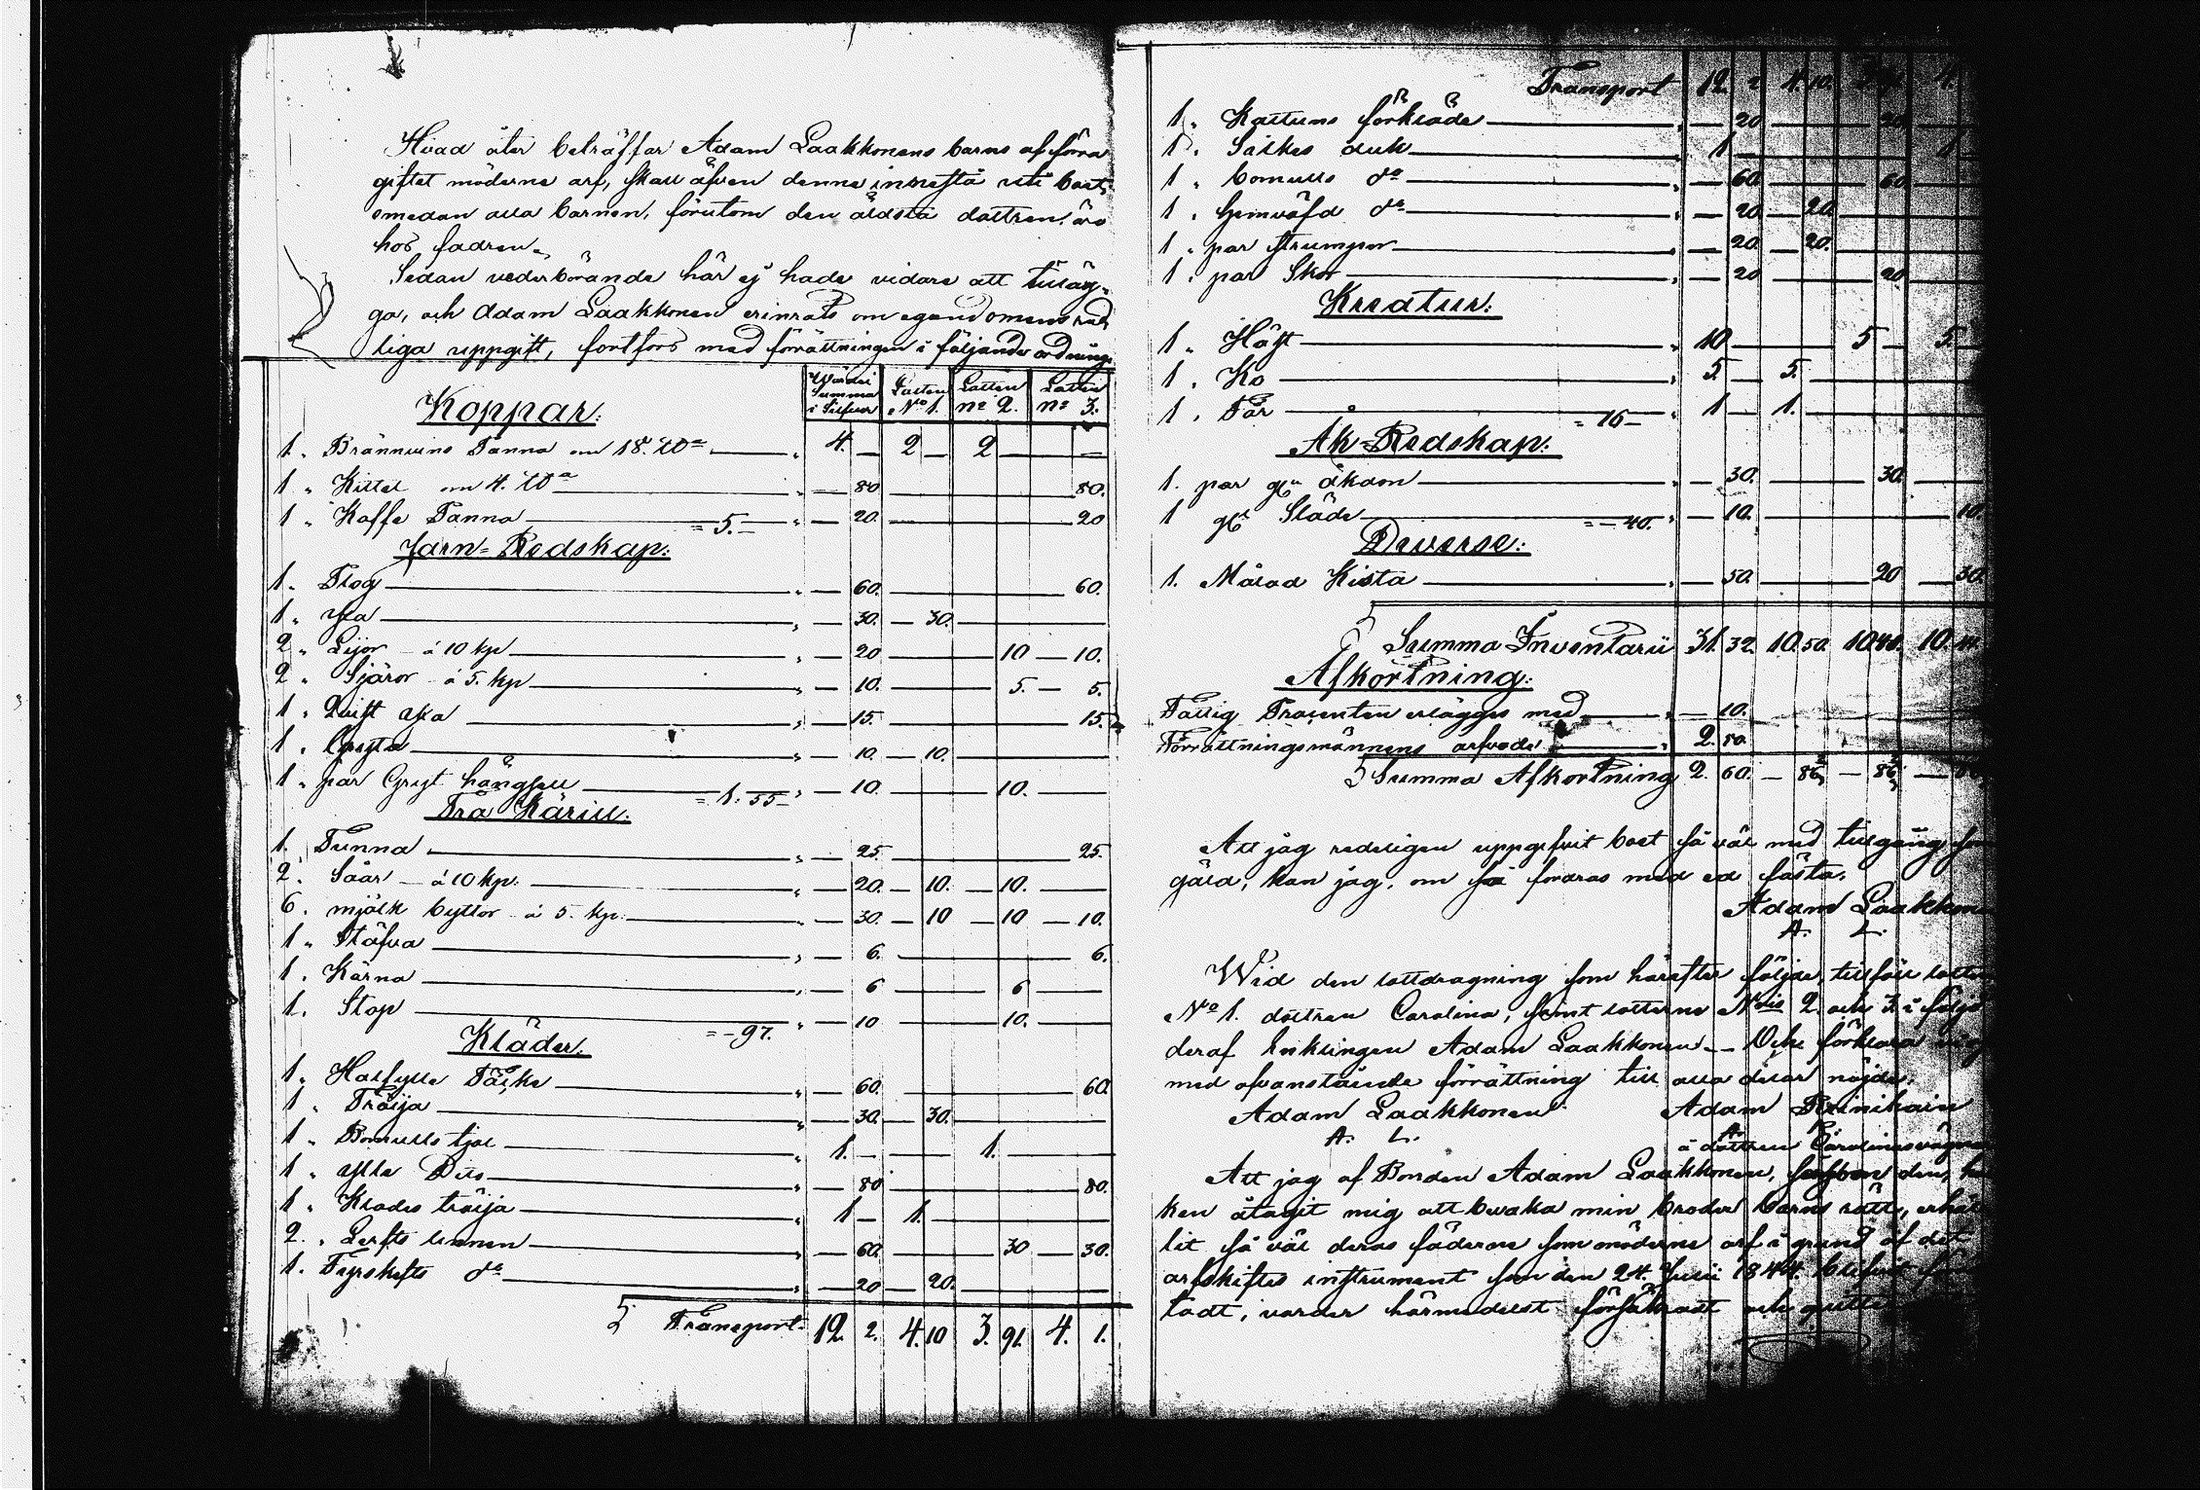 Hvad åter beträffar Adam Laakkonens barns af förra
giftet möderne arf, skall äfven denne innestå uti boet,
emedan alla barnen, förutom den äldsta dottren, äro
hos fadren.
Sedan vederbörande här ej hade vidare att tilläg-
ga, och Adam Laakkonen erinrats om egendomens red-
liga uppgift, fortfors med förrättningen i följande ordning:
Wärdei Summa i Silfver Lotten No 1. Lotten No 2. Lotten No 3.
Koppar:
1. Brännvins Panna om 18. — 4. — 2 — 2 —
1 " Kittel om 4. — 80 — 80.
1 " Kaffe Panna = 5. — — 20. — 20
Jarn=Redskap:
1. Plog — 60. — 60.
1. Yxa — 30. — 30.
2 " Lijor — á 10 kp — 20 — 10 — 10.
2 " Skjäror — á 5. kp — 10. — 5. — 5.
1 " Qvist yxa — 15. — 15.
1. Gryta — 10. — 10.
1 " par Gryt hängslen = 1. 55 — — 10. — 10.
Trä Käril:
1. Tunna — 25 — 25.
2. Såar — á 10 kp. — 20. — 10. — 10.
6. mjölk byttor á 5. kp. — 30. — 10 — 10 — 10.
1 " Stäfva — 6. — 6.
1. Kärna — 6 — 6
1. Stop = — 97. — 10 — 10.
Kläder:
1. Halfylle — 60. — 60
1. Tröija — 30. — 30.
1 " Bomulls kjol 1. — 1.
1 " Ylle Dito — 80 — 80.
1 " Klädes tröija 1 — 1.
2. Lerfts linnen — 60. — 30 — 30.
1. Fyrskefts do — 20 — 20.
Transport. 12. 2. 4. 10 3. 91. 4. 1.
Transport 12. 2 4. 10. 4.
1. Kattuns förkläde — 20 — 20
1. Silkes duk 1 — 1
1 " bomulls do — 60 — 60
1. hemväfd do — 20 — 20
1 " par strumpor — 20 — 20.
1. par Skor — 20 — 20
Kreatur:
1. Häst 10 — 5 — 5.
1. Ko 5. — 5.
1. Får = 16 — 1 — 1.
Åk=Redskap:
1. par gla åkdon — 30. — 30.
1 gl Släde = — 40. — 10. — 10.
Diverse:
1. Målad Kista — 50. — 20 — 30.
Summa Inventarii 31. 32. 10. 50. 10 10.
Afkortning:
Fattig Procenten erlägges med — 10.
Förrättningsmännens arfvode 2. 50.
Summa Afkortning 2. 60. — 86 2/3 — 86 2/3
Att jag redeligen uppgifvit boet så väl med tillgång som
gäld, kan jag, om så fordras med ed fästa.
Adam Laakkonen
A. L.
Wid den lottdragning som härefter följde, tillföll lotten
No 1. dottren Carolina, samt lotterne 2 och 3 i följd
deraf Enklingen Adam Laakkonen — Och förklara sig
med ofvanstående förrättning till alla delar nöjda.
Adam Laakkonen Adam
A. L. A.
å dottren Carolinas vägnar
Att jag af Bonden Adam Laakkonen,
ken åtagit mig att bevaka min broders barns rätt, erhål-
lit så väl deras fäderne som möderne arf i grund af det
arfskiftes instrument som den 24. Julii 1844. blifvit
tadt, varder härmedelst och